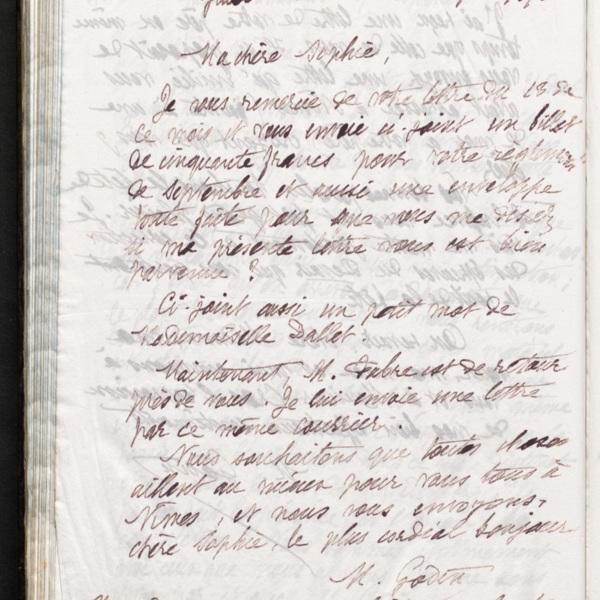 Ma chère Sophie,
Je vous remercie de votre lettre du 18 de
ce mois et vous envoie ci-joint un billet
de cinquante francs pour votre règlement
de Septembre et aussi une enveloppe
toute faite pour que vous me disiez
si ma présente lettre vous est bien
parvenue ?
Ci-joint aussi un petit mot de
Mademoiselle Dallet.
Maintenant, M. Fabre est de retour
près de vous. Je lui envoie une lettre
par ce même courrier.
Nous souhaitons que toutes choses
aillent au mieux pour vous tous à
Nîmes, et nous vous envoyons,
chère Sophie, le plus cordial bonjour
M. Godin